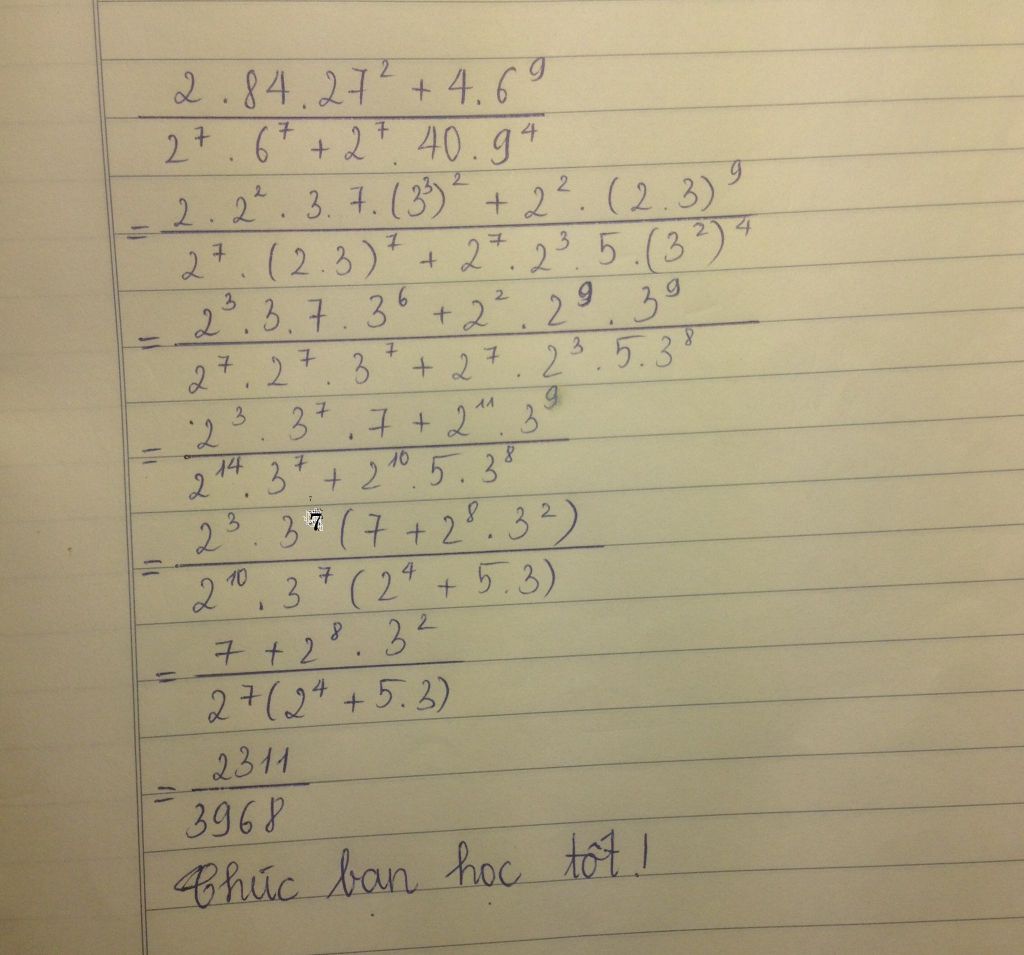 2 . 84 . 27² + 4 . 6⁹
2⁷ . 6⁷ + 2⁷ . 40 . 9⁴
= 2 . 2² . 3 . 7 . (3³)² + 2² . (2 . 3)⁹
2⁷ . (2 . 3)⁷ + 2⁷ . 2³ . 5 . (3²)⁴
= 2³ . 3 . 7 . 3⁶ + 2² . 2⁹ . 3⁹
2⁷ . 2⁷ . 3⁷ + 2⁷ . 2³ . 5 . 3⁸
= 2³ . 3⁷ . 7 + 2¹¹ . 3⁹
2¹⁴ . 3⁷ + 2¹⁰ . 5 . 3⁸
= 2³ . 3⁷ (7 + 2⁸ . 3²)
2¹⁰ . 3⁷ (2⁴ + 5 . 3)
= 7 + 2⁸ . 3²
2⁷ (2⁴ + 5 . 3)
= 2311
3968
Chúc bạn học tốt !